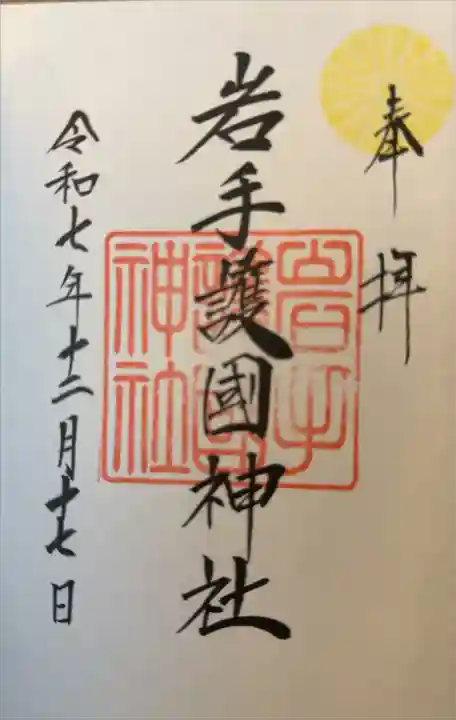 奉拝
岩手護國神社
岩手護國神社
令和七年十二月十七日